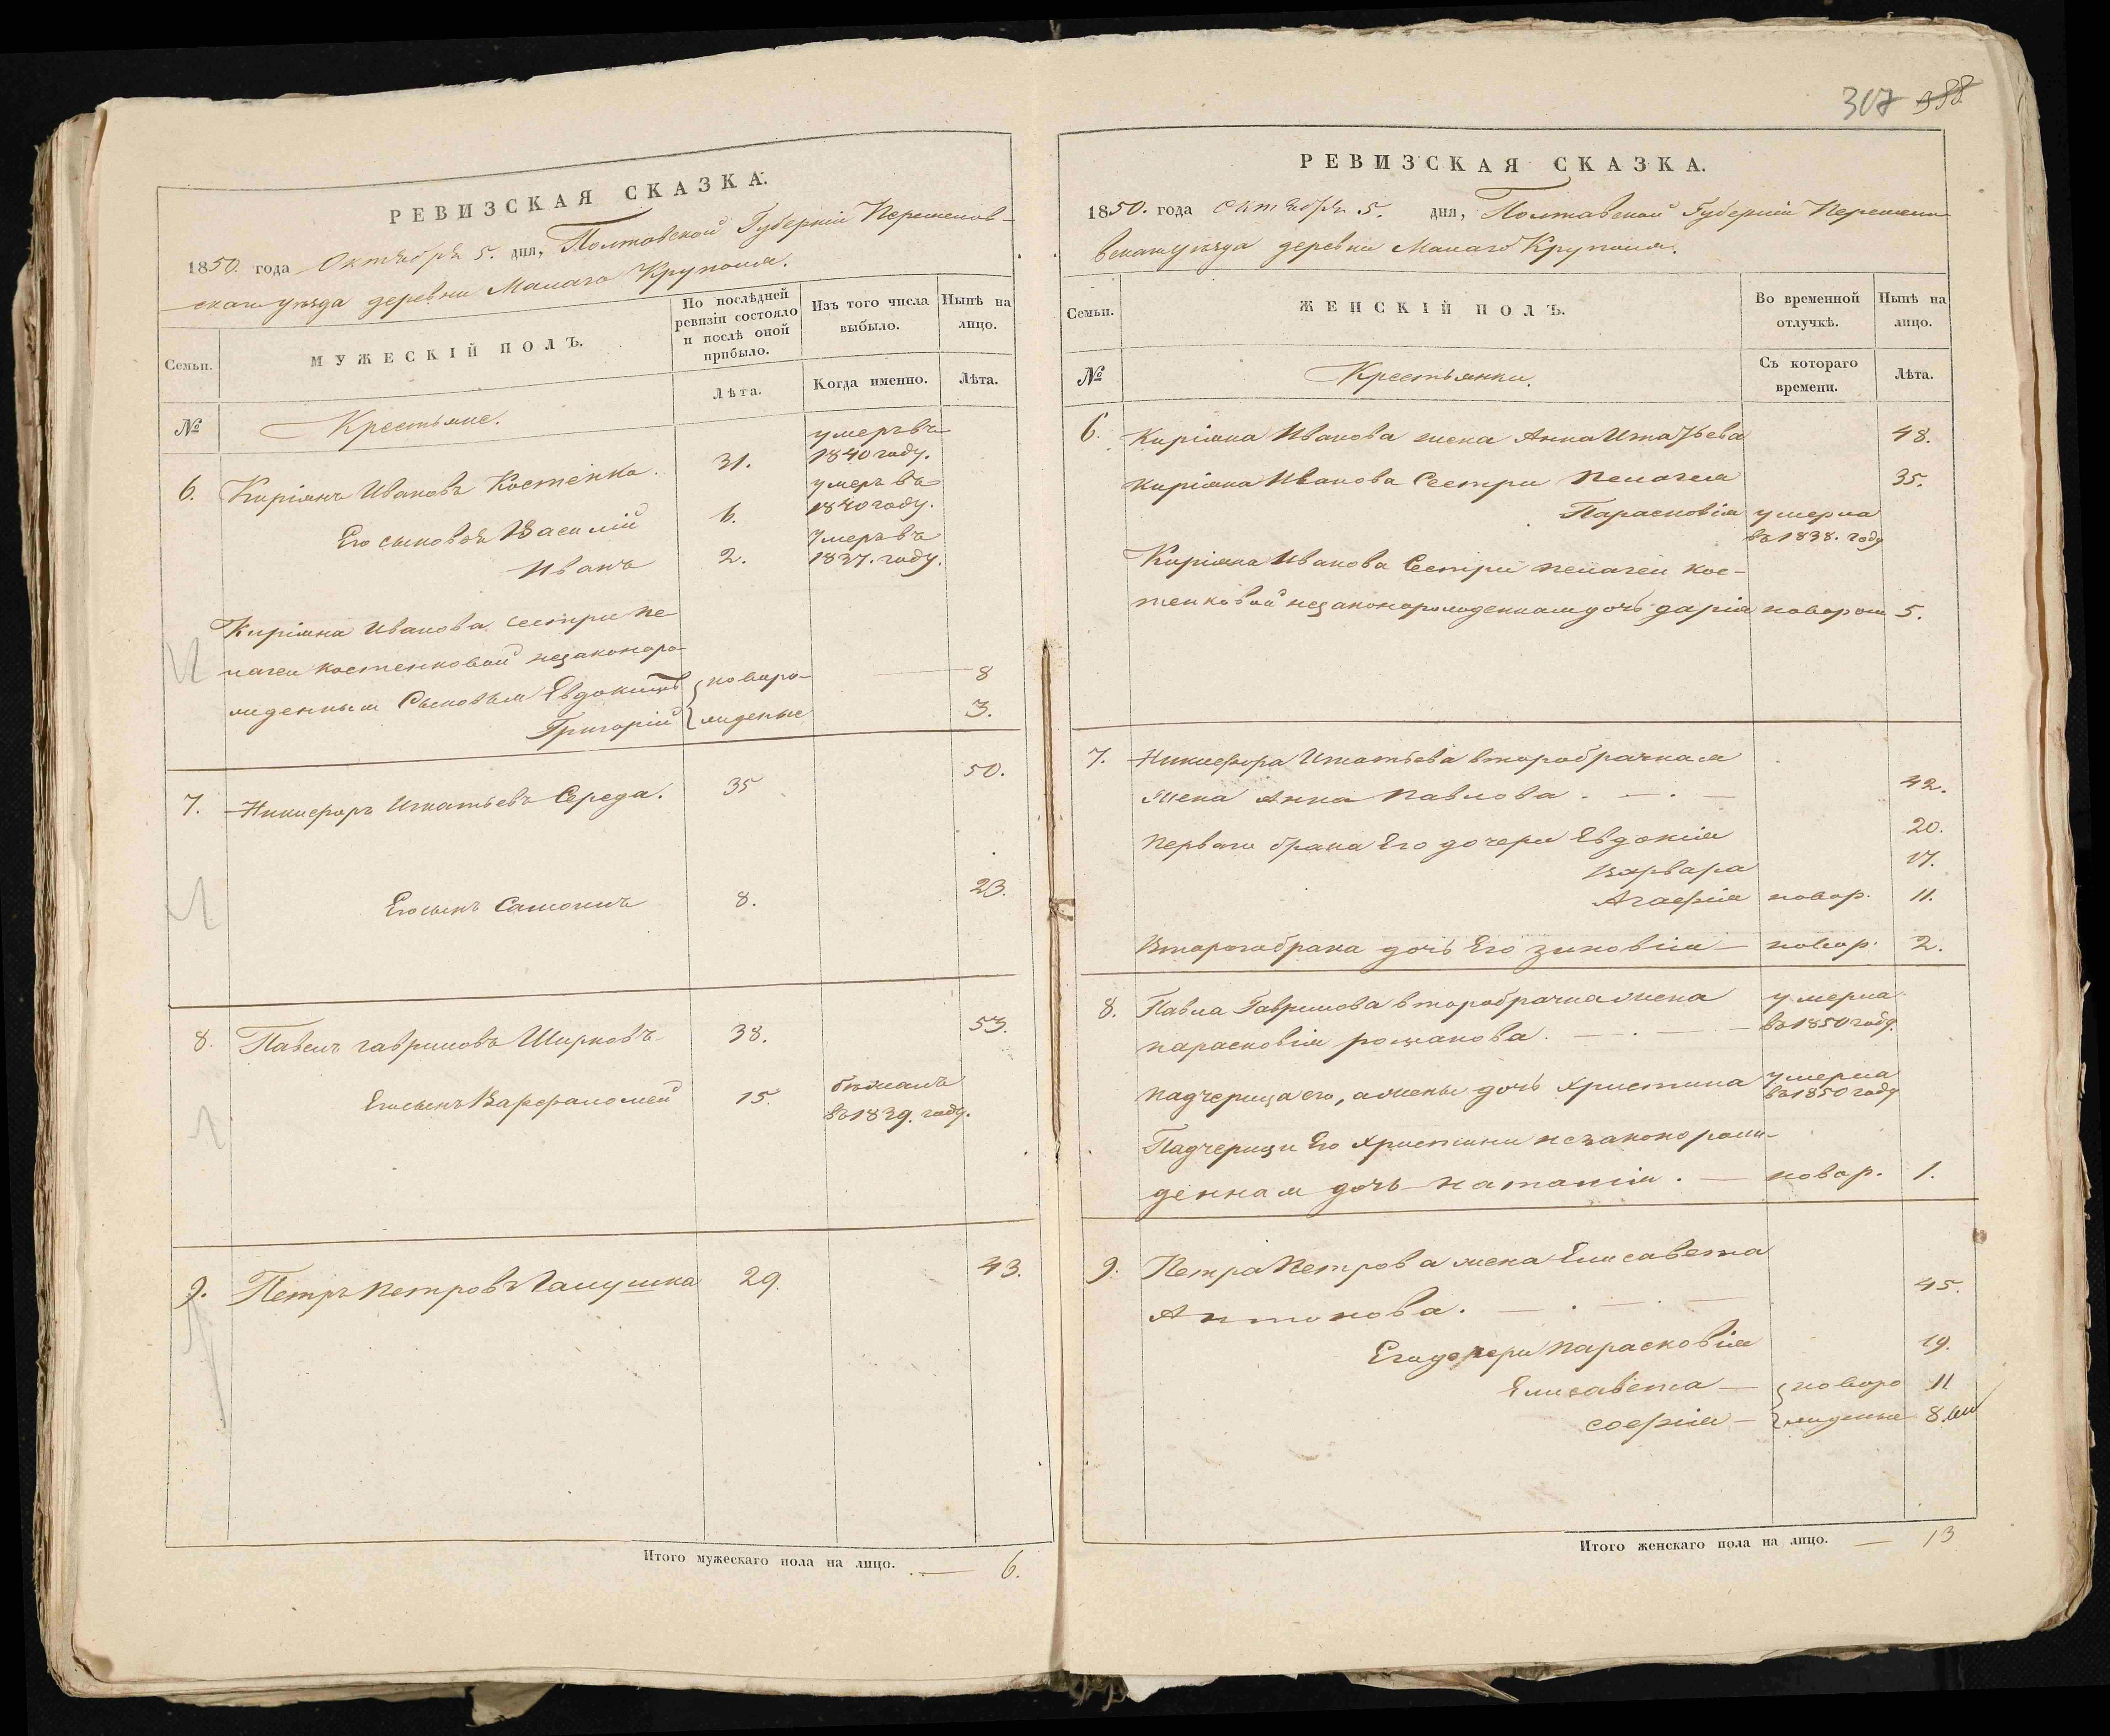 РЕВИЗСКАЯ СКАЗКА.
1850. года Октября 5. дня, Полтавской Губерніи Переяслав-
скаго уѣзда деревни Малаго Крупола.
Семьи.
МУЖЕСКІЙ ПОЛЪ.
По послѣдней ревизіи состояло и послѣ оной прибыло.
Изъ того числа выбыло.
Нынѣ на лицо.
№
Крестьяне.
Лѣта.
Когда именно.
Лѣта.
6. Киріянъ Ивановъ Костенко. 31. умеръ въ 1840 году.
Его сыновья Василій 6. умеръ въ 1840 году.
Иванъ 2. Умеръ въ 1837. году.
Киріяна Иванова сестри Пе-
лагеи Костенковой незаконоро-
жденныя Сыновья Евдокимъ новоро- 8
Григорій жденые 3.
7. Никифоръ Игнатьевъ Середа. 35 50.
Его сынъ Самоилъ 8. 23.
8. Павелъ Гавриловъ Ширковъ 38. 53.
Его сынъ Варфаломей 15. бѣжалъ въ 1839. году.
9. Петръ Петровъ Галушка 29. 43.
Итого мужескаго пола на лицо. 6.
307 388
РЕВИЗСКАЯ СКАЗКА.
1850. года Октября 5. дня, Полтавской Губерніи Переясла-
вскаго уѣзда деревни Малаго Крупола.
Семьи.
ЖЕНСКІЙ ПОЛЪ.
Во временной отлучкѣ.
Нынѣ на лицо.
№
Крестьянки.
Съ котораго времени.
Лѣта.
6. Киріяна Иванова жена Анна Игнатьева 48.
Киріяна Иванова Сестри Пелагея 35.
Парасковія умерла въ 1838. году
Киріяна Иванова Сестри Пелагеи Кос-
тенковой незаконорожденная дочь Дарія новорож 5.
7. Никифора Игнатьева второбрачная
жена Анна Павлова. 42.
Перваго брака Его дочери Евдокія 20.
Варвара 17.
Агафія новор. 11.
Втораго брака дочь Его Зиновія новор. 2.
8. Павла Гаврилова второбрачна жена умерла
Парасковія Романова. въ 1850 году.
Падчерица его, а жены дочь Христина умерла въ 1850 году
Падчерици Его Христини незаконорож-
денная дочь Наталія. новор. 1.
9. Петра Петрова жена Елисавета
Антонова. 45.
Его дочери Парасковія 19.
Елисавета новоро 11
Софія жденые 8.
Итого женскаго пола на лицо. 13